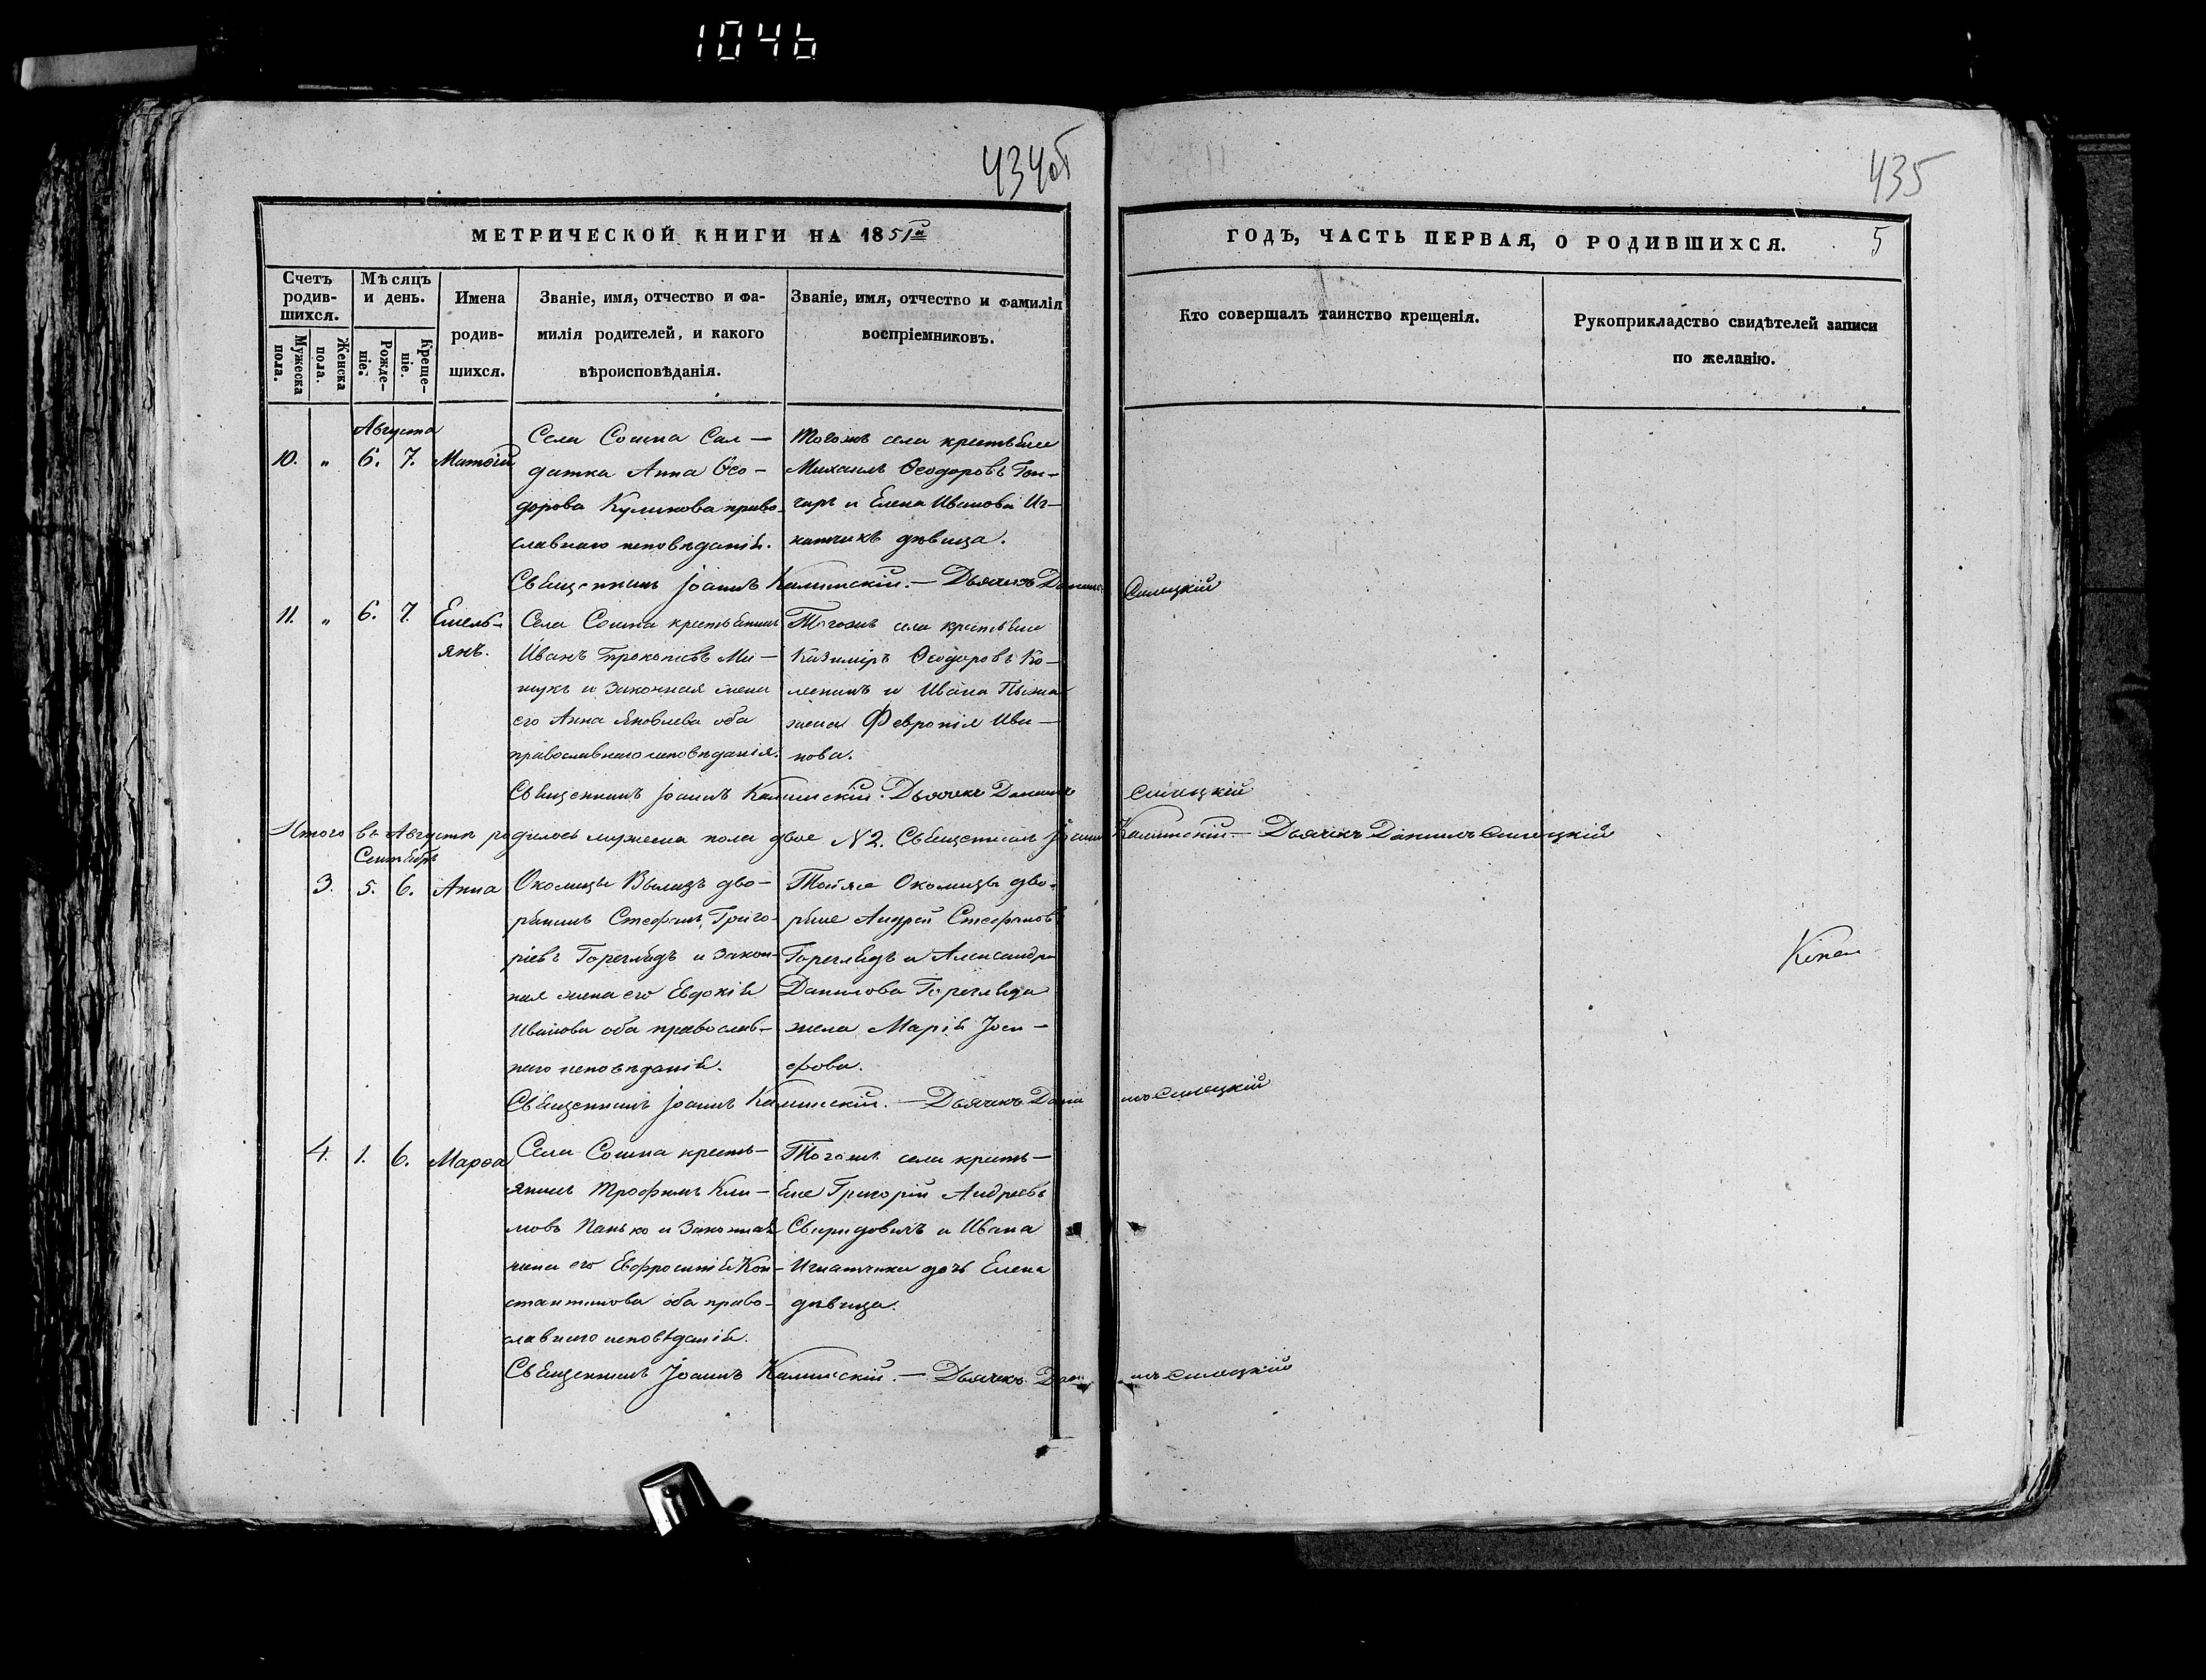 1046
434об
435
МЕТРИЧЕСКОЙ КНИГИ НА 1851й
ГОДЪ, ЧАСТЬ ПЕРВАЯ, О РОДИВШИХСЯ. 5
Счетъ родившихся.
Мужеска пола.
Женска пола.
Мѣсяцъ и день.
Рожденіе.
Крещеніе.
Имена родившихся.
Званіе, имя, отчество и фамилія родителей, и какого вѣроисповѣданія.
Званіе, имя, отчество и фамилія воспріемниковъ.
Кто совершалъ таинство крещенія.
Рукоприкладство свидѣтелей записи по желанію.
Августа
10. " 6. 7. Матѳій
Села Сошна Сал—
датка Анна Ѳео-
дорова Куликова право-
славнаго исповѣданія.
Тогожъ села крестьяне
Михаилъ Ѳеодоровъ Гон-
чаръ и Елена Иванова Иг-
натчикъ дѣвица.
Священникъ Іоаннъ Калинскій. — Дьячекъ Даниилъ Силецкій
11. " 6. 7. Емель-
янъ.
Села Сошна крестьянинъ
Иванъ Прокопіевъ Ми-
щукъ и законная жена
его Анна Яковлева оба
православнаго исповѣданія.
Тогожъ села крестьяне
Казиміръ Ѳеодоровъ Ко-
и Ивана
жена Февронія Ива-
нова.
Священникъ Іоаннъ Калинскій. Дьячекъ Даниилъ Силецкій
Итого въ Августѣ родилось мужеска пола двое N 2. Священникъ Іоаннъ Калинскій — Дьячекъ Даниилъ Силецкій
Сентября
3. 5. 6. Анна
Околицы Вылазъ дво-
рянинъ Стефанъ Григо-
ріевъ Гореглядъ и закон-
ная жена его Евдокія
Иванова оба православ-
наго исповѣданія.
Тойже Околицы дво-
ряне Андрей Стефановъ
Гореглядъ и Александра
Данилова Горегляда
жена Марія Іоси-
фова.
Священникъ Іоаннъ Калинскій. — Дьячекъ Даниилъ Силецкій
4. 1. 6. Марѳа
Села Сошна кресть-
янинъ Трофимъ Кли-
мовъ Панько и законная
жена его Евфросинія Кон-
стантинова оба право-
славнаго исповѣданія.
Тогожъ села кресть-
яне Григорій Андреевъ
Свиридовичъ и Ивана
Игнатчика дочь Елена
дѣвица.
Священникъ Іоаннъ Калинскій. — Дьячекъ Даниилъ Силецкій